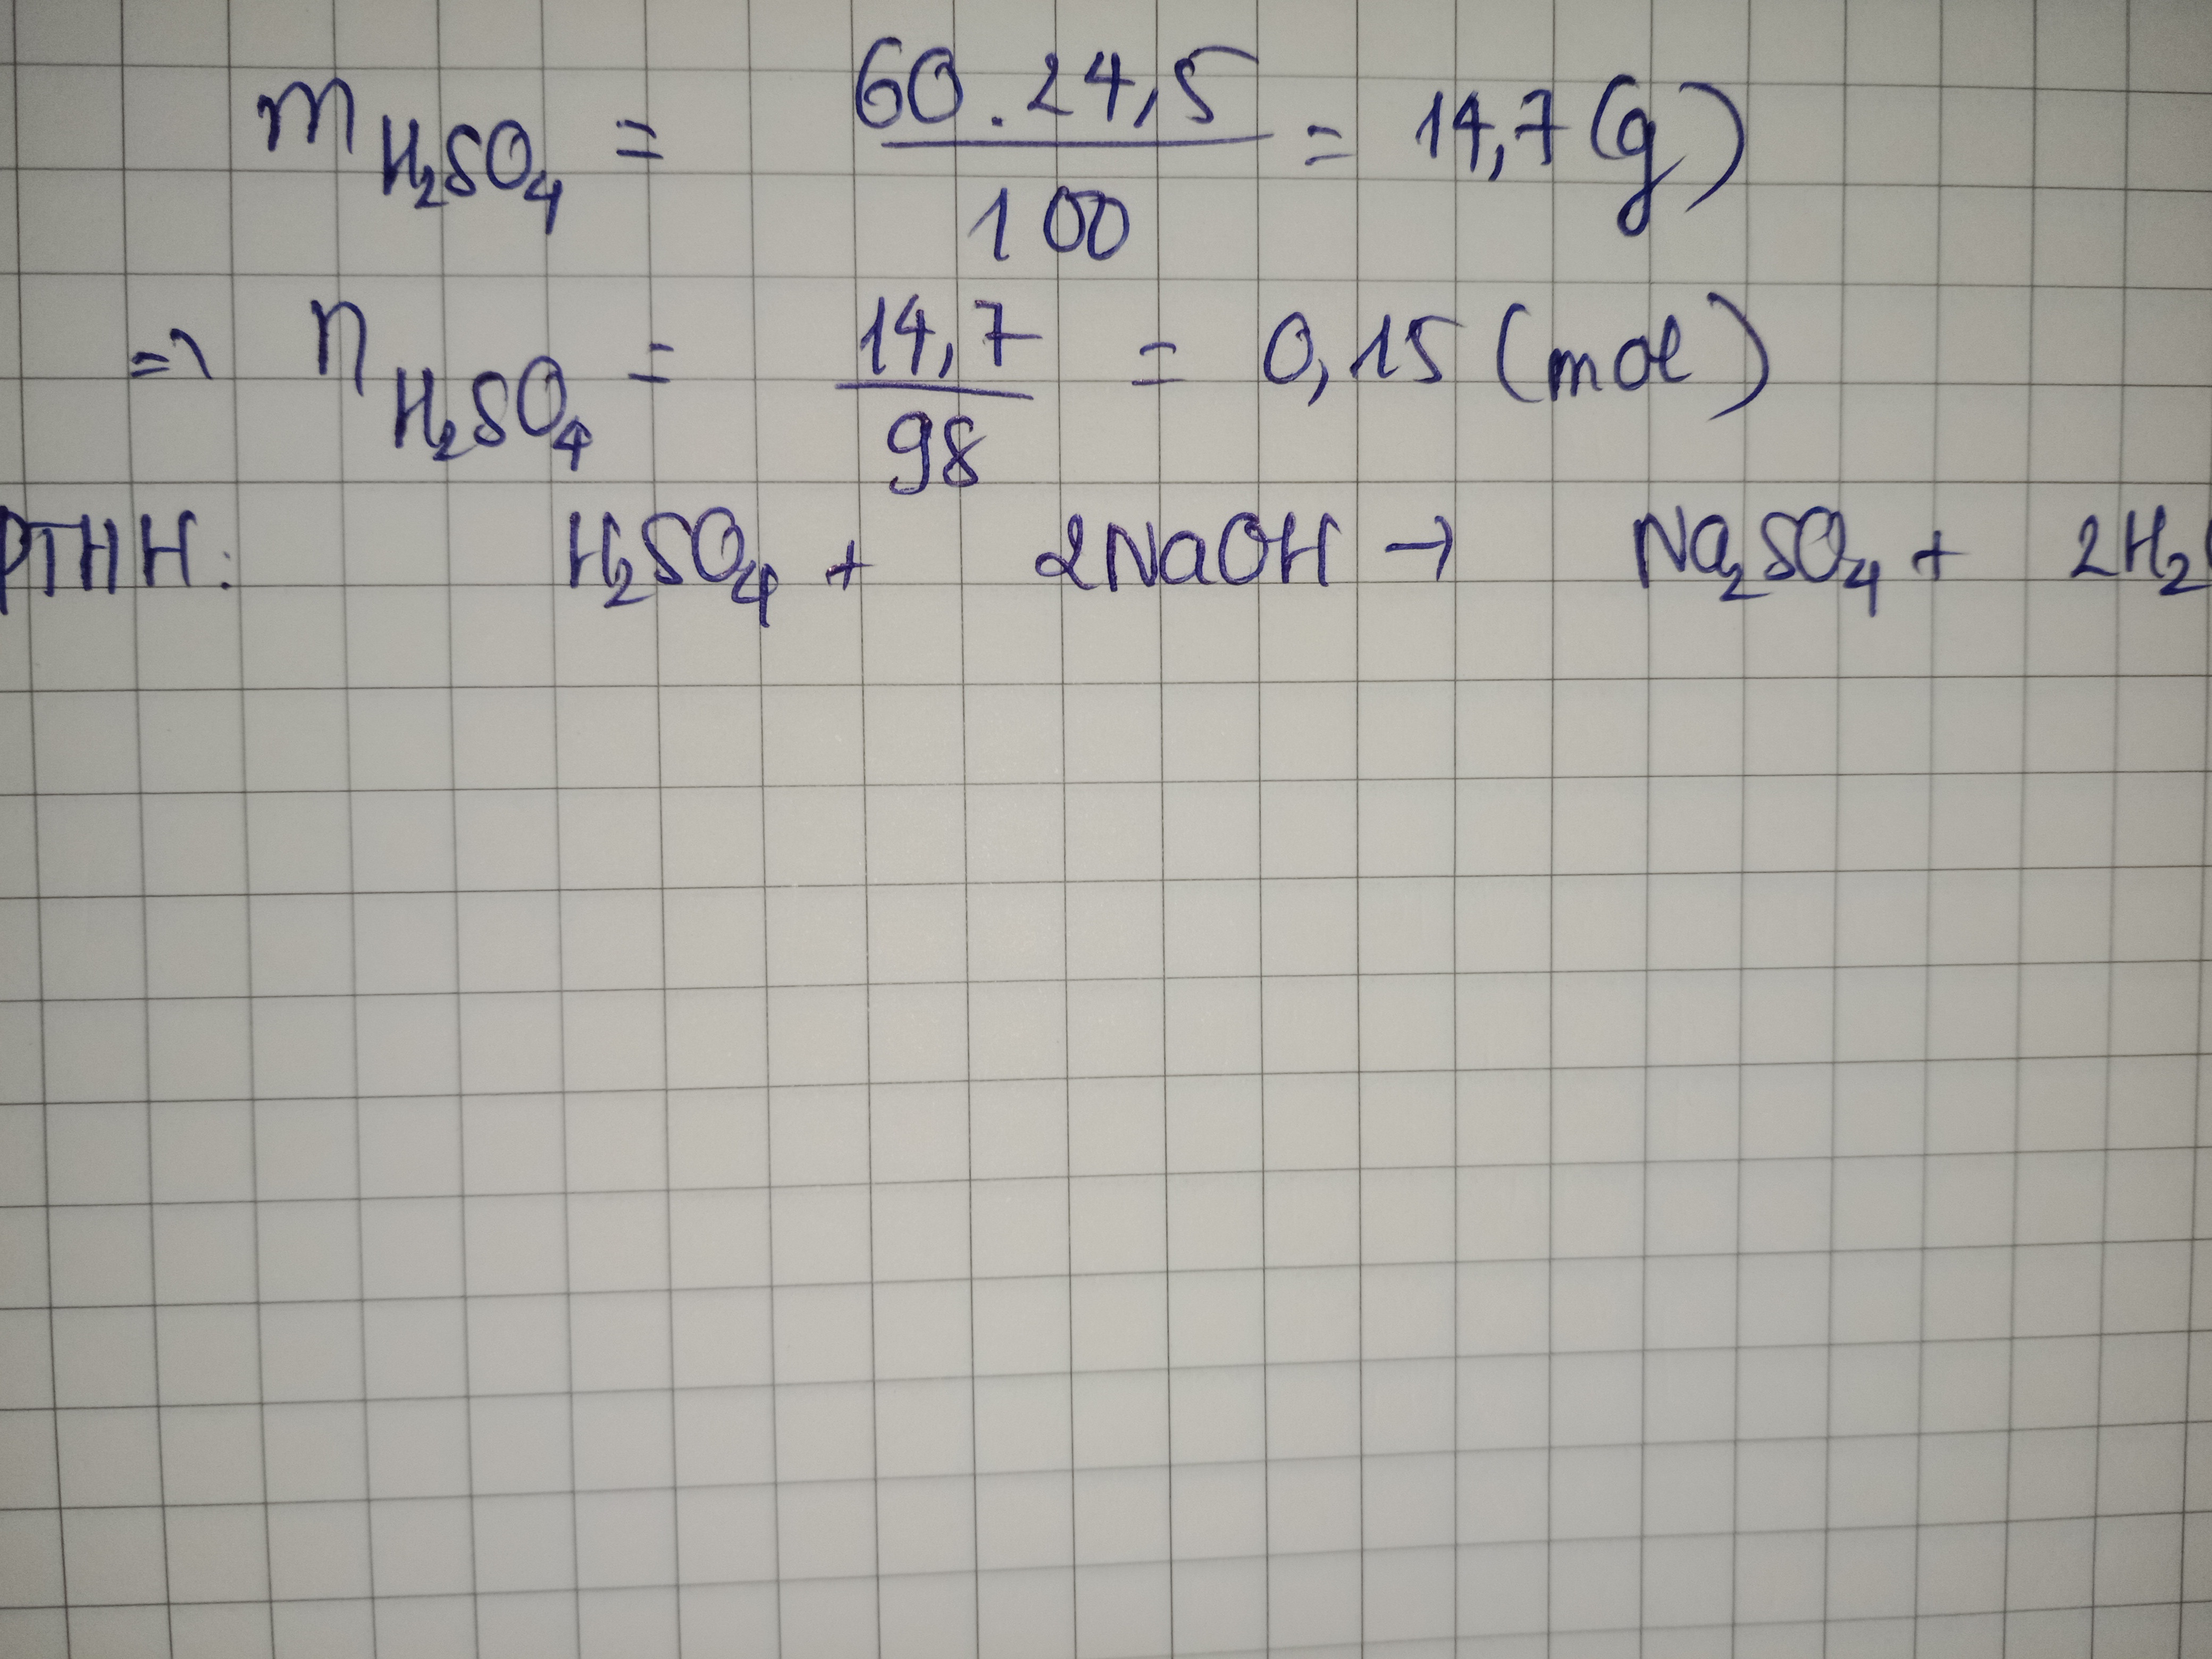 m H₂SO₄ = 60 . 24,5 / 100 = 14,7 (g)
=> n H₂SO₄ = 14,7 / 98 = 0,15 (mol)
PTHH: H₂SO₄ + 2NaOH → Na₂SO₄ + 2H₂